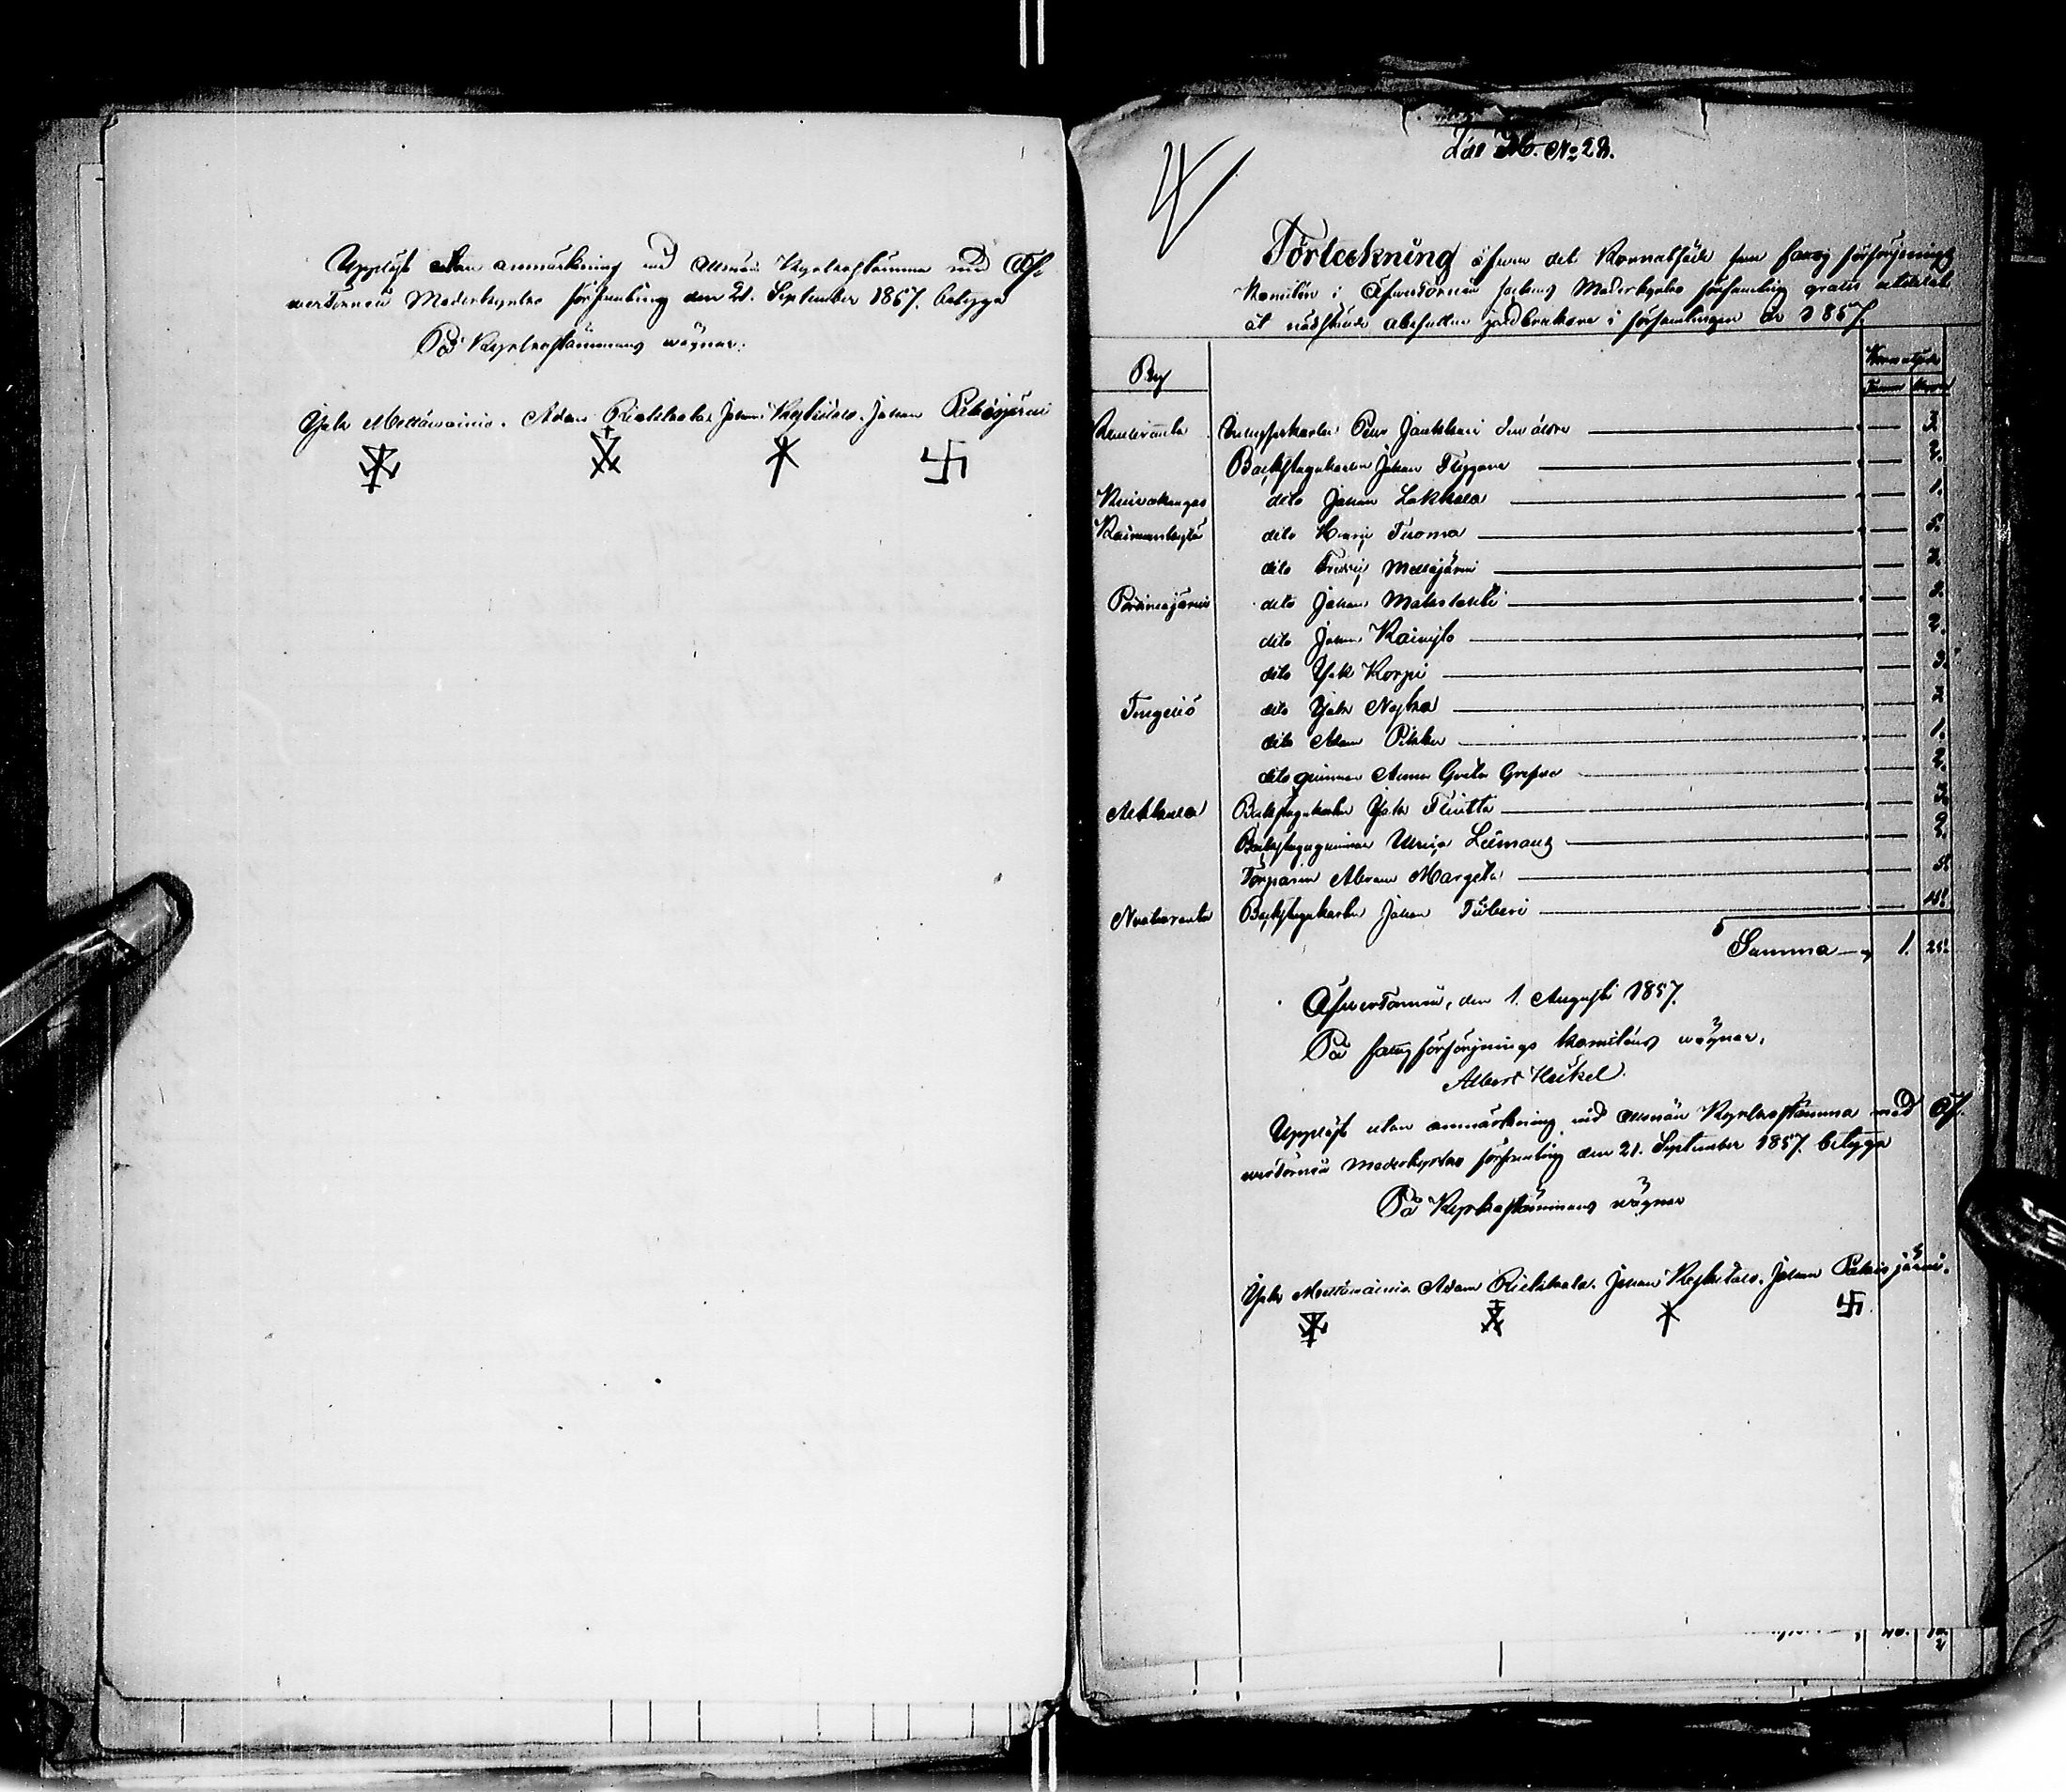 Uppläst utan anmärkning vid allmän Kyrkostämma med Öf-
vertorneå Moderkyrko församling den 21. September 1867. betyga
På Kyrkostämmans wägnar:
Isak Mettäwainio. Adam Rietkkola. Johan Kyhtälä. Johan Palosjärvi
Litt H. No 28.
Förteckning öfver det Kornutsäde som fattigförsörjnings
Komitén i Öfvertorneå sockens Moderkyrko församling gratis utdelat
åt nödstälde obesuttne jordbrukare i församlingen år 1867.
By
Kornutsäde
Tunnor Kappar
Inhysekarlen Petter Jankkari den äldre 3.
Backstugukarlen Johan Flygare 2.
Kuivakangas dito Johan Lakkala 1.
Kainuunkylä dito Henrik Tuoma 5.
dito Fredrik Mellajärvi 3.
Portimojärvi dito Johan Matoslahti 3.
dito Johan Kainylo 2.
dito Isak Korpi 3.
Tengeliö dito Isak Nylra 2
dito Adam Pikku 1.
dito qvinnan Anna Greta Grape 2.
Alkkula Backstugukarlen Isak Tuitta 3.
Backstuguqvinnan Ulrica Liimang 2.
Torparen Abram Margeta 5.
Nuotioranta Backstugukarlen Johan Tiiberi
Summa 1. 25.
Öfvertorneå, den 1. Augusti 1867.
På fattigförsörjnings komiténs wägnar,
Albert Heikel.
Uppläst utan anmärkning vid allmän Kyrkostämma med Öf-
vertorneå Moderkyrko församling den 21. September 1867. betyga
På Kyrkostämmans wägnar
Isak Mettäwainio. Adam Rietkkola. Johan Kyhtälä. Johan Palosjärvi.